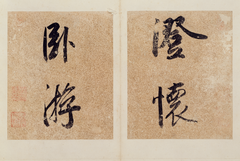 澄懷
卧游